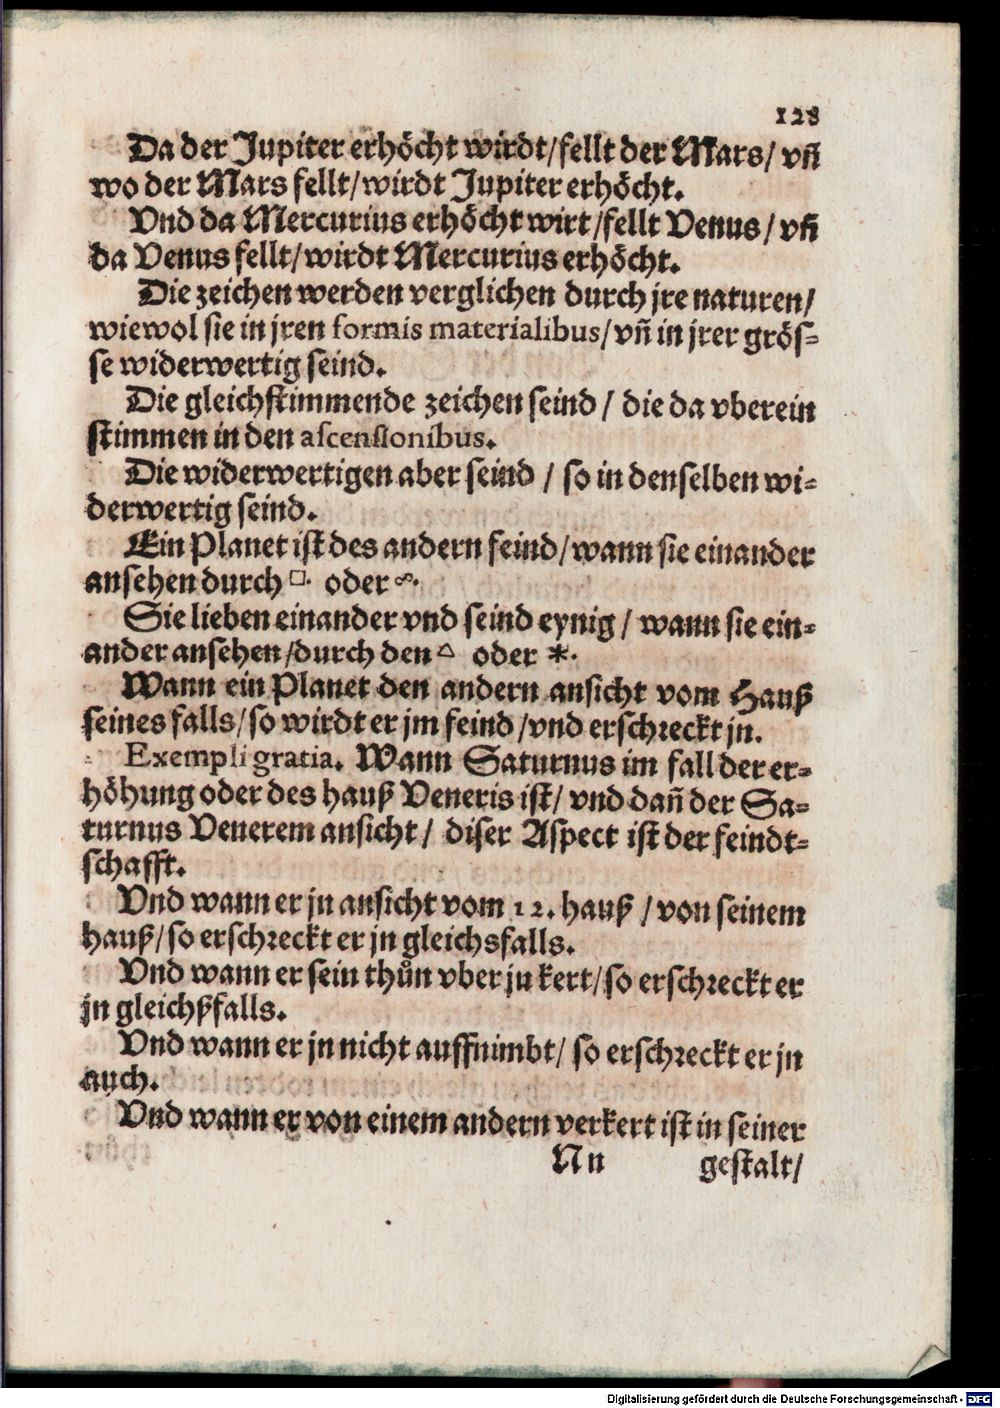 128
Da der Jupiter erhöcht wirdt/fellt der Mars/ vñ
wo der Mars fellt/wirdt Jupiter erhöcht.
Vnd da Mercurius erhöcht wirt/fellt Venus/ vñ
da Venus fellt/wirdt Mercurius erhöcht.
Die zeichen werden verglichen durch jre naturen/
wiewol sie in jren formis materialibus/vñ in jrer grös-
se widerwertig seind.
Die gleichstimmende zeichen seind / die da vberein
stimmen in den ascensionibus.
Die widerwertigen aber seind / so in denselben wi-
derwertig seind.
Ein Planet ist des andern feind/wann sie einander
ansehen durch □. oder ☍.
Sie lieben einander vnd seind eynig / wann sie ein-
ander ansehen/durch den △ oder ⚹.
Wann ein Planet den andern ansicht vom Hauß
seines falls/so wirdt er jm feind/vnd erschreckt jn.
Exempli gratia. Wann Saturnus im fall der er-
höhung oder des hauß Veneris ist/ vnd dañ der Sa-
turnus Venerem ansicht/ diser Aspect ist der feindt-
schafft.
Vnd wann er jn ansicht vom 12. hauß /von seinem
hauß/so erschreckt er jn gleichsfalls.
Vnd wann er sein thůn vber jn kert/so erschreckt er
jn gleichßfalls.
Vnd wann er jn nicht auffnimbt/ so erschreckt er jn
auch.
Vnd wann er von einem andern verkert ist in seiner
Nn gestalt/
Digitalisierung gefördert durch die Deutsche Forschungsgemeinschaft - DFG